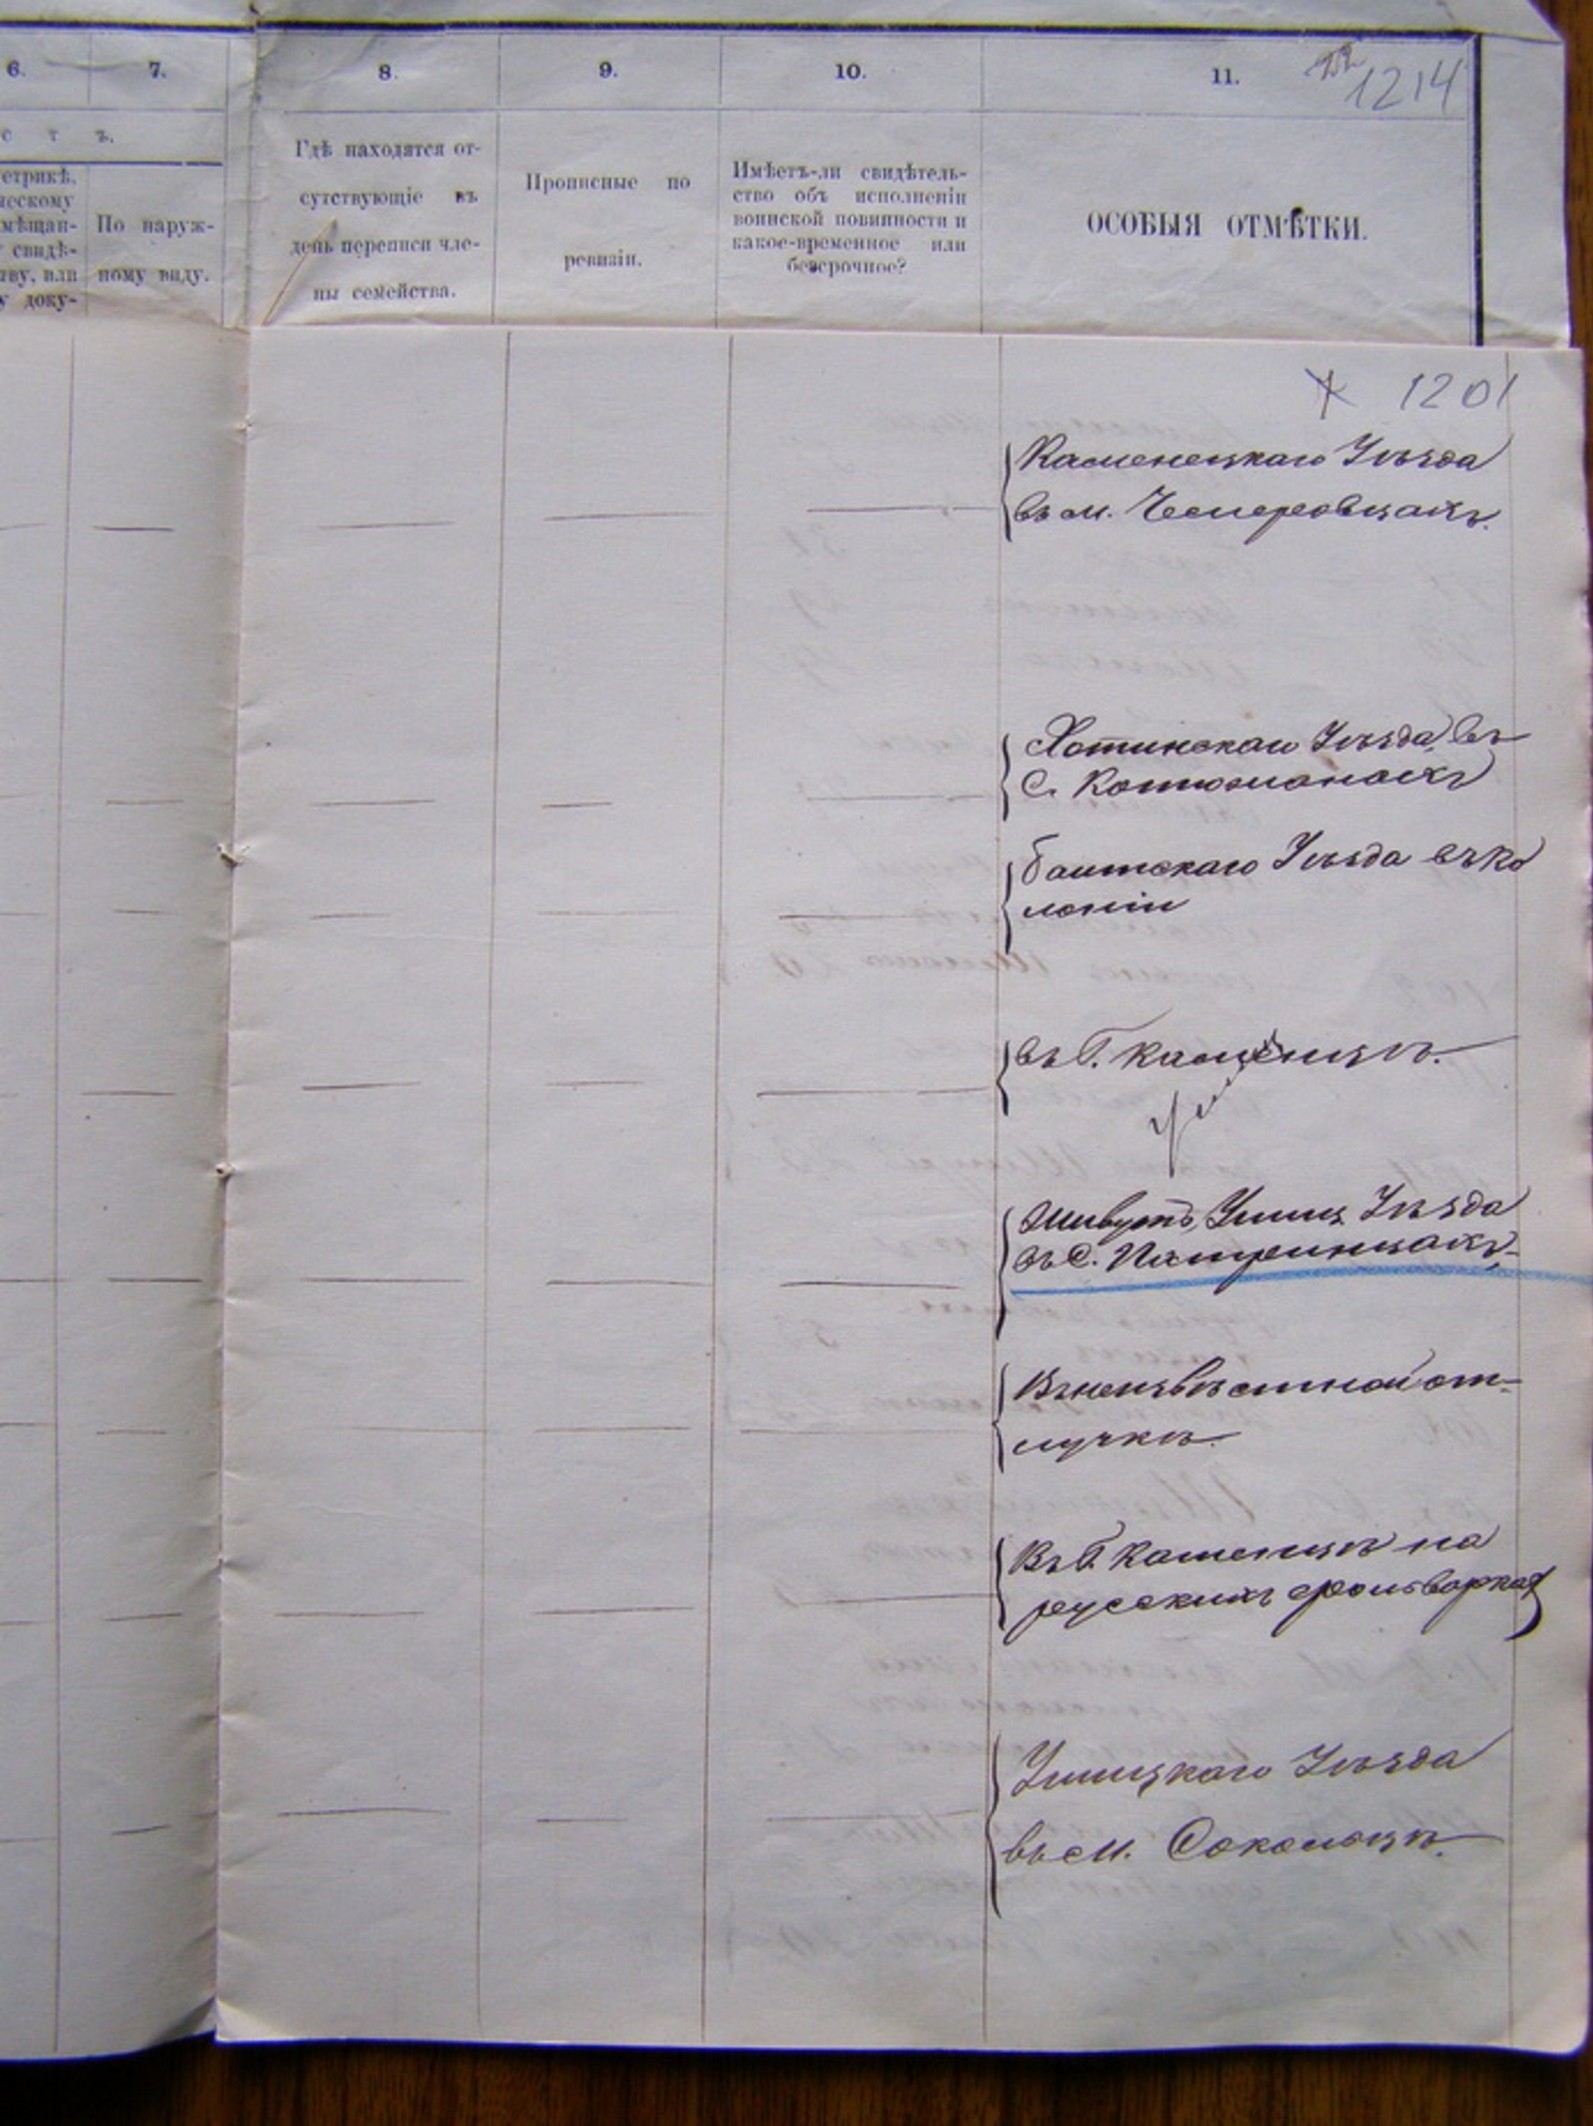 6. 7. 8. 9. 10. 11. 1214
с т ъ.
етрикѣ,
ческому
мѣщан-
свидѣ-
тву, или
у доку-
По наруж-
ному виду.
Гдѣ находятся от-
сутствующіе въ
день переписи чле-
ны семейства.
Прописные по
ревизіи.
Имѣетъ-ли свидѣтель-
ство объ исполненіи
воинской повинности и
какое-временное или
безсрочное?
ОСОБЫЯ ОТМѢТКИ.
1201
Каменецкаго Уѣзда
въ м. Чемеровцахъ.
Хотинскаго Уѣзда, въ
С. Котюжанахъ
балтскаго Уѣзда въ ко
лоніи
въ Г. Каменцѣ.
Живутъ, Ушиц Уѣзда
въ С.
Въ неизвѣстной от-
лучкѣ.
Въ Г. Каменцѣ на
русскихъ фольваркахъ
Ушицкаго Уѣзда
въ м. Соколецѣ.